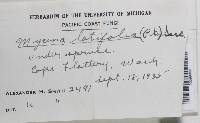 HERBARIUM OF THE UNIVERSITY OF MICHIGAN
PACIFIC COAST FUNGI
Mycena latifolia (Pk) Sacc.
under spruce.
Cape Flattery, Wash
Sept. 18, 1935
ALEXANDER H. SMITH 2491